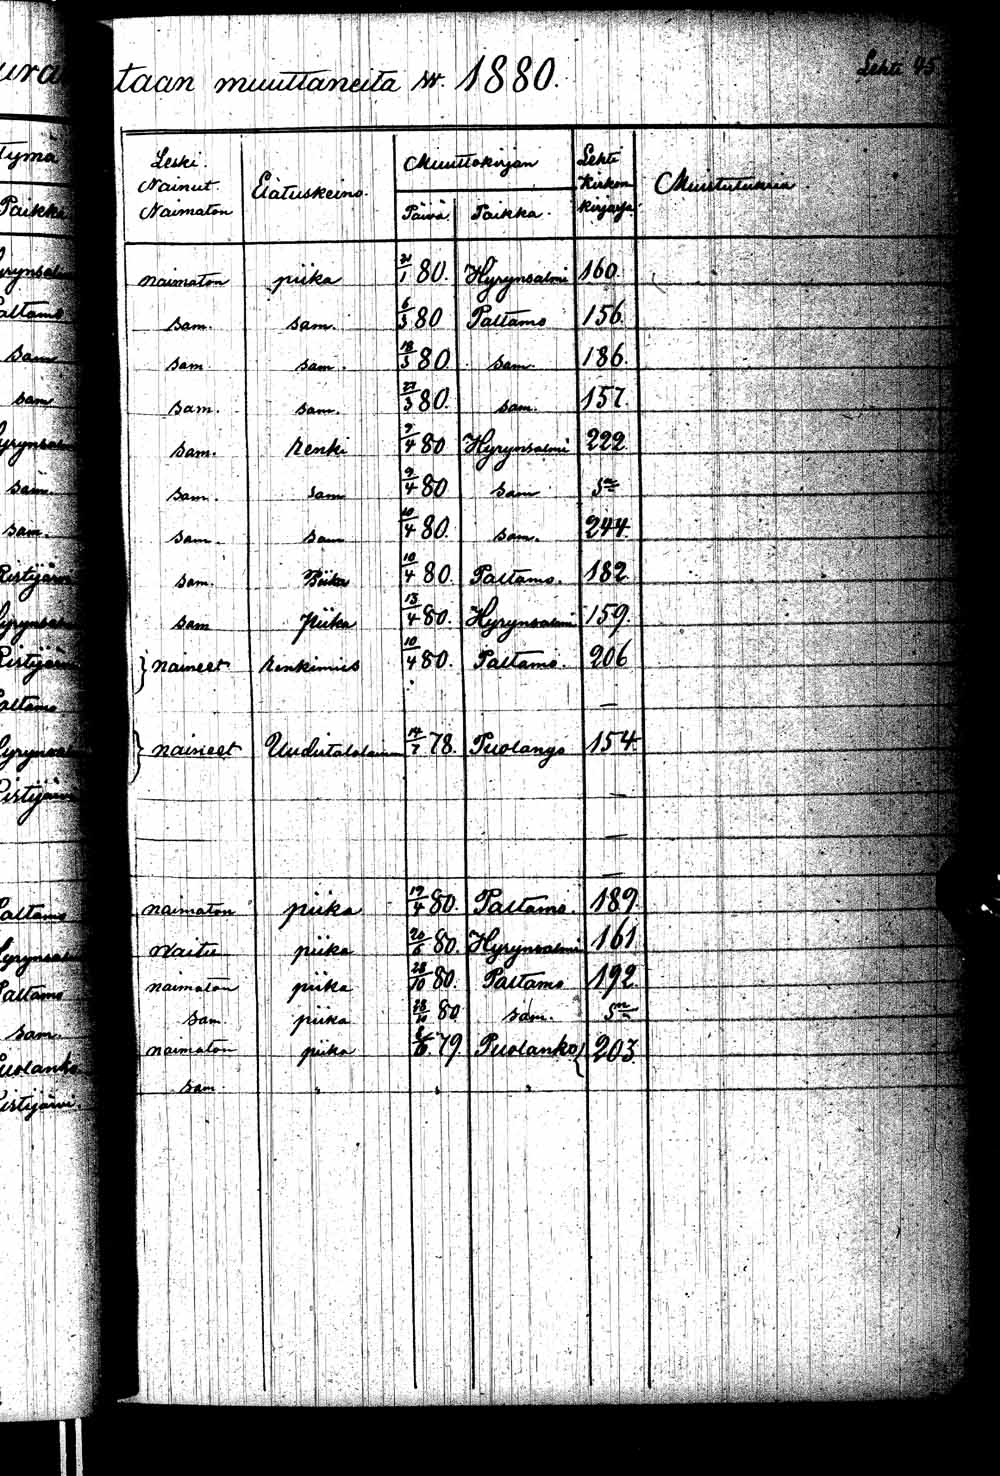 taan muuttaneita w. 1880.
Lehti 45
Leski. Nainut. Naimaton
Elatuskeino.
Muuttokirjan
Päivä Paikka.
Lehti Kirkon kirjassa.
Muistutuksia
naimaton piika 21/1 80. Hyrynsalmi 160.
sam. sam. 6/3 80 Paltamo 156.
sam. sam. 18/3 80. sam. 186.
sam. sam. 27/3 80. sam. 157.
sam. renki 9/4 80 Hyrynsalmi 222
sam. sam 9/4 80 sam sn
sam. sam 10/4 80. sam. 244.
sam. Piika 10/4 80. Paltamo. 182
sam piika 13/4 80. Hyrynsalmi 159.
} naineet renkimies 10/4 80. Paltamo. 206
—
} naineet Uudistalolainen 14/7 78. Puolango 154.
—
—
—
naimaton piika 19/4 80. Paltamo. 189
piika 20/6 80. Hyrynsalmi 161
naimaton piika 28/10 80. Paltamo 192
sam. piika 28/10 80 sam. sn
naimaton piika 79. Puolanko { 203.
sam. " " "
Paikka
Hyrynsalmi
Paltamo
sam
sam
Hyrynsalmi
sam.
sam.
Ristijärvi
Hyrynsalmi
Ristijärvi
Paltamo
Hyrynsalmi
Ristijärvi
Paltamo
Hyrynsalmi
Paltamo
sam.
Puolanko
Ristijärvi.